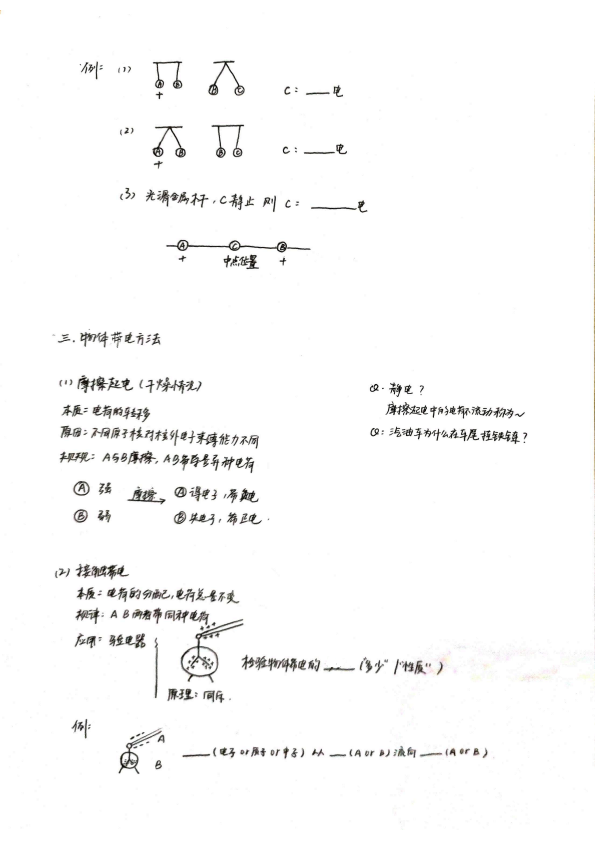 例: (1)
A B B C
+
C: ___电
(2)
A B B C
+
C: ___电
(3) 光滑金属杆, C静止 则 C: ___电
A C B
+ 中点位置 +
三. 物体带电方法
(1) 摩擦起电 (干燥情况)
本质: 电荷的转移
原因: 不同原子核对核外电子束缚能力不同
规律: A与B摩擦, AB带等量异种电荷
A 强 摩擦 A 得电子, 带负电
B 弱 B 失电子, 带正电.
Q. 静电?
摩擦起电中的电荷不流动称为~
Q: 汽油车为什么在车尾挂铁链?
(2) 接触带电
本质: 电荷的分配, 电荷总量不变
规律: A B 两者带同种电荷
应用: 验电器
检验物体带电的 ___ ("多少" / "性质")
原理: 同斥.
例:
A
B
___ (电子 or 质子 or 中子) 从 ___ (A or B) 流向 ___ (A or B)